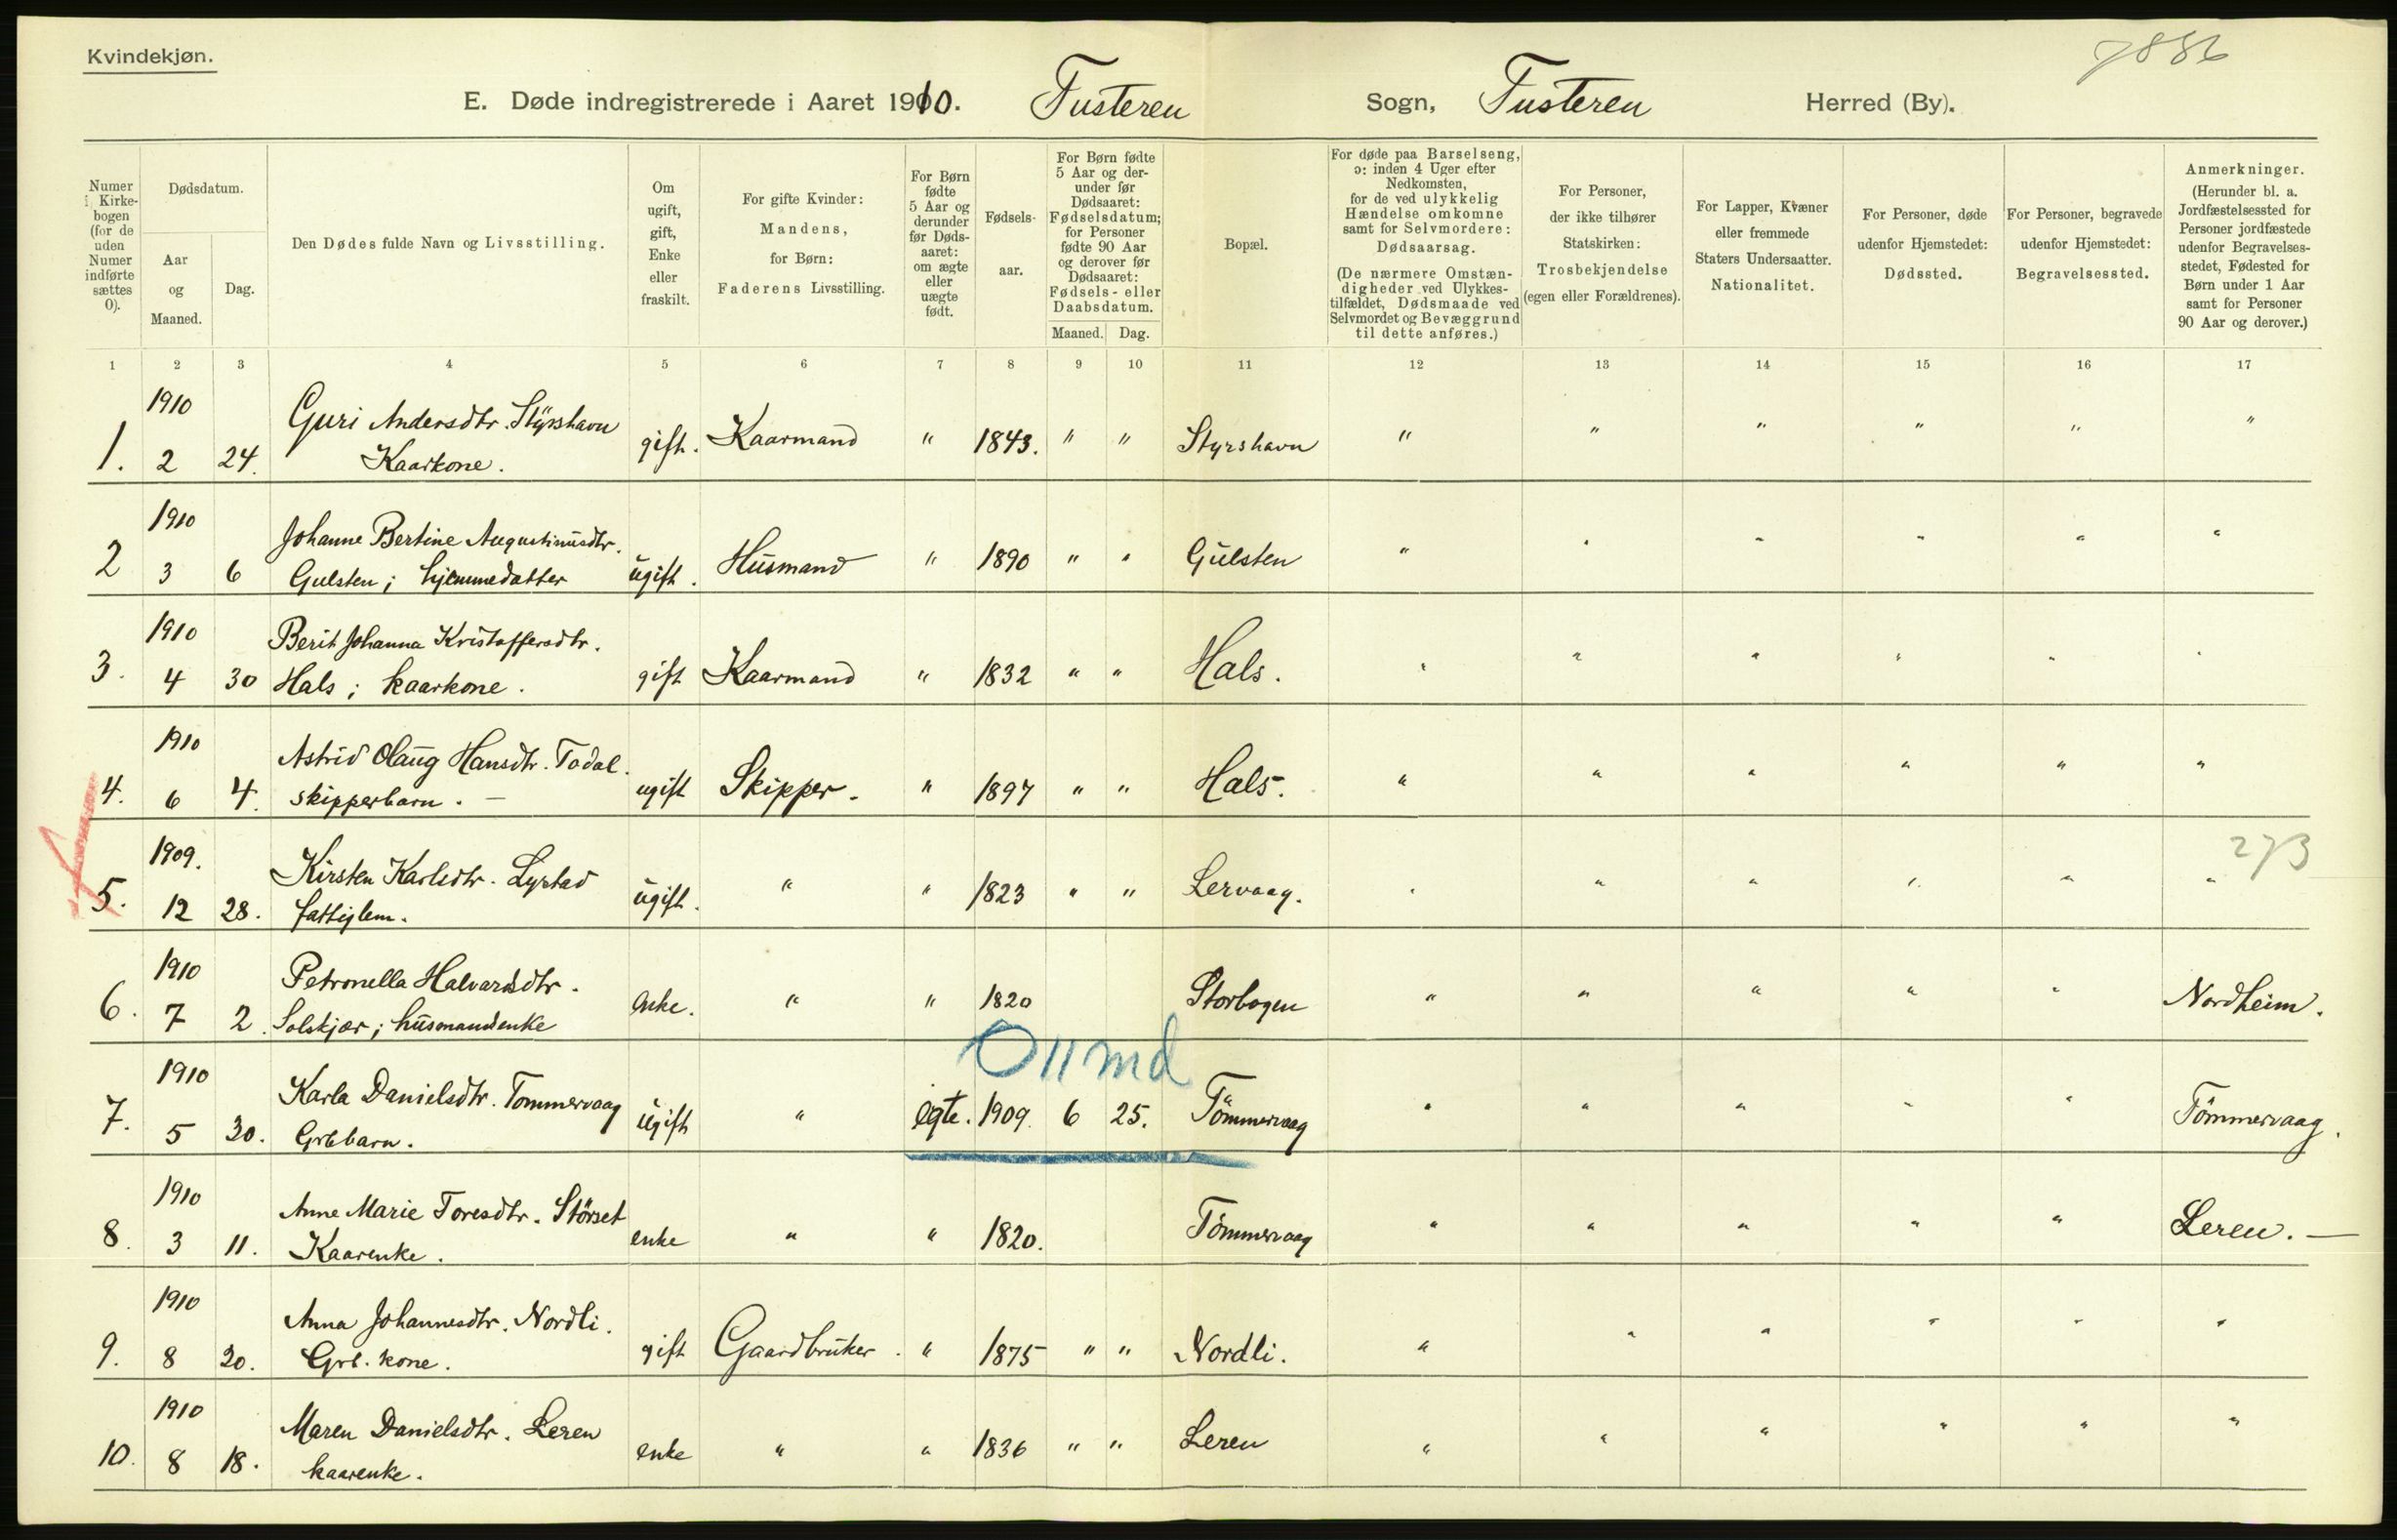 Kvindekjøn.
7886
E. Døde indregistrerede i Aaret 1910. Fusteren Sogn, Fusteren Herred (By).
Numer i Kirkebogen (for de uden Numer indførte sættes 0).
Dødsdatum.
Aar og Maaned.
Dag.
Den Dødes fulde Navn og Livsstilling.
Om ugift, gift, Enke eller fraskilt.
For gifte Kvinder: Mandens, for Børn: Faderens Livsstilling.
For Børn fødte 5 Aar og derunder før Dødsaaret: om ægte eller uægte født.
Fødselsaar.
For Børn fødte 5 Aar og derunder før Dødsaaret: Fødselsdatum; for Personer fødte 90 Aar og derover før Dødsaaret: Fødsels- eller Daabsdatum.
Maaned. Dag.
Bopæl.
For døde paa Barselseng, ɔ: inden 4 Uger efter Nedkomsten, for de ved ulykkelig Hændelse omkomne samt for Selvmordere: Dødsaarsag.
(De nærmere Omstændigheder ved Ulykkestilfældet, Dødsmaade ved Selvmordet og Bevæggrund til dette anføres.)
For Personer, der ikke tilhører Statskirken: Trosbekjendelse (egen eller Forældrenes).
For Lapper, Kvæner eller fremmede Staters Undersaatter. Nationalitet.
For Personer, døde udenfor Hjemstedet: Dødssted.
For Personer, begravede udenfor Hjemstedet: Begravelsessted.
Anmerkninger.
(Herunder bl. a. Jordfæstelsessted for Personer jordfæstede udenfor Begravelsesstedet, Fødested for Børn under 1 Aar samt for Personer 90 Aar og derover.)
1 2 3 4 5 6 7 8 9 10 11 12 13 14 15 16 17
1910 Guri Andersdtr. Styrshavn
1. 2 24. Kaarkone. gift. Kaarmand " 1843. " " Styrshavn " " " " " "
1910 Johanne Bertine Augustinusdtr.
2 3 6 Gulsten; hjemmedatter ugift. Husmand " 1890 " " Gulsten " " " " " "
1910 Berit Johanna Kristoffersdtr.
3. 4 30 Hals; kaarkone. gift Kaarmand " 1832 " " Hals. " " " " " "
1910 Astrid Olaug Hansdtr. Todal.
4. 6 4. skipperbarn. — ugift Skipper. " 1897 " " Hals. " " " " " "
1909. Kirsten Karlsdtr. Lystad 273
5. 12 28. fattiglem. ugift. " " 1823 " " Lervaag. " " " " " "
1910 Petronella Halvardsdtr.
6. 7 2. Solskjær; husmandsenke enke. " " 1820 Storbogen " " " " " Nordheim.
0 11 md
1910 Karla Danielsdtr. Tommervaag
7. 5 30. Grbbarn. ugift " egte. 1909. 6 25. Tömmervaag " " " " " Tömmervaag.
1910 Anne Marie Toresdtr. Störset
8. 3 11. Kaarenke. enke " " 1820. Tömmervaag " " " " " Leren. —
1910 Anna Johannesdtr. Nordli.
9. 8 20. Grb. kone. gift Gaardbruker. " 1875 " " Nordli. " " " " " "
1910 Maren Danielsdtr. Leren
10. 8 18. kaarenke. enke " " 1836 " " Leren " " " " " "